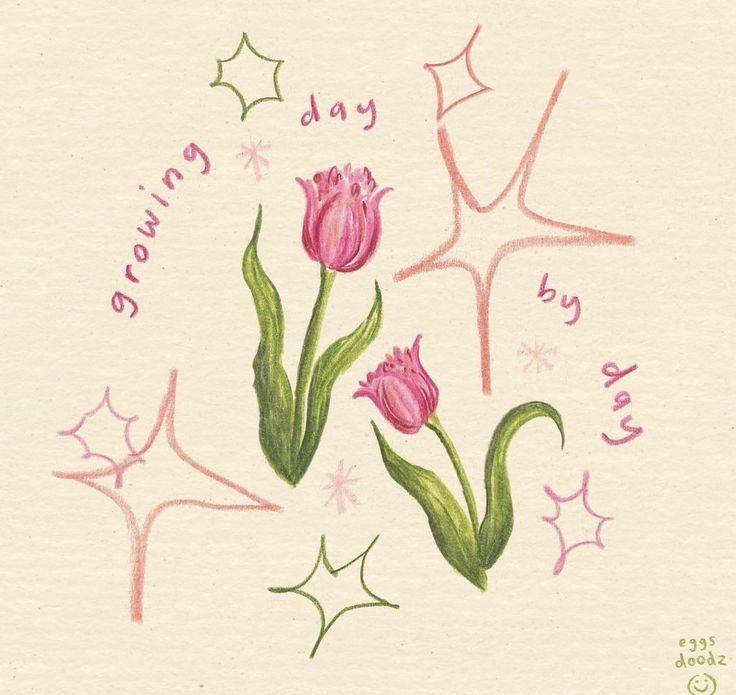 growing day by day
eggs
doodz